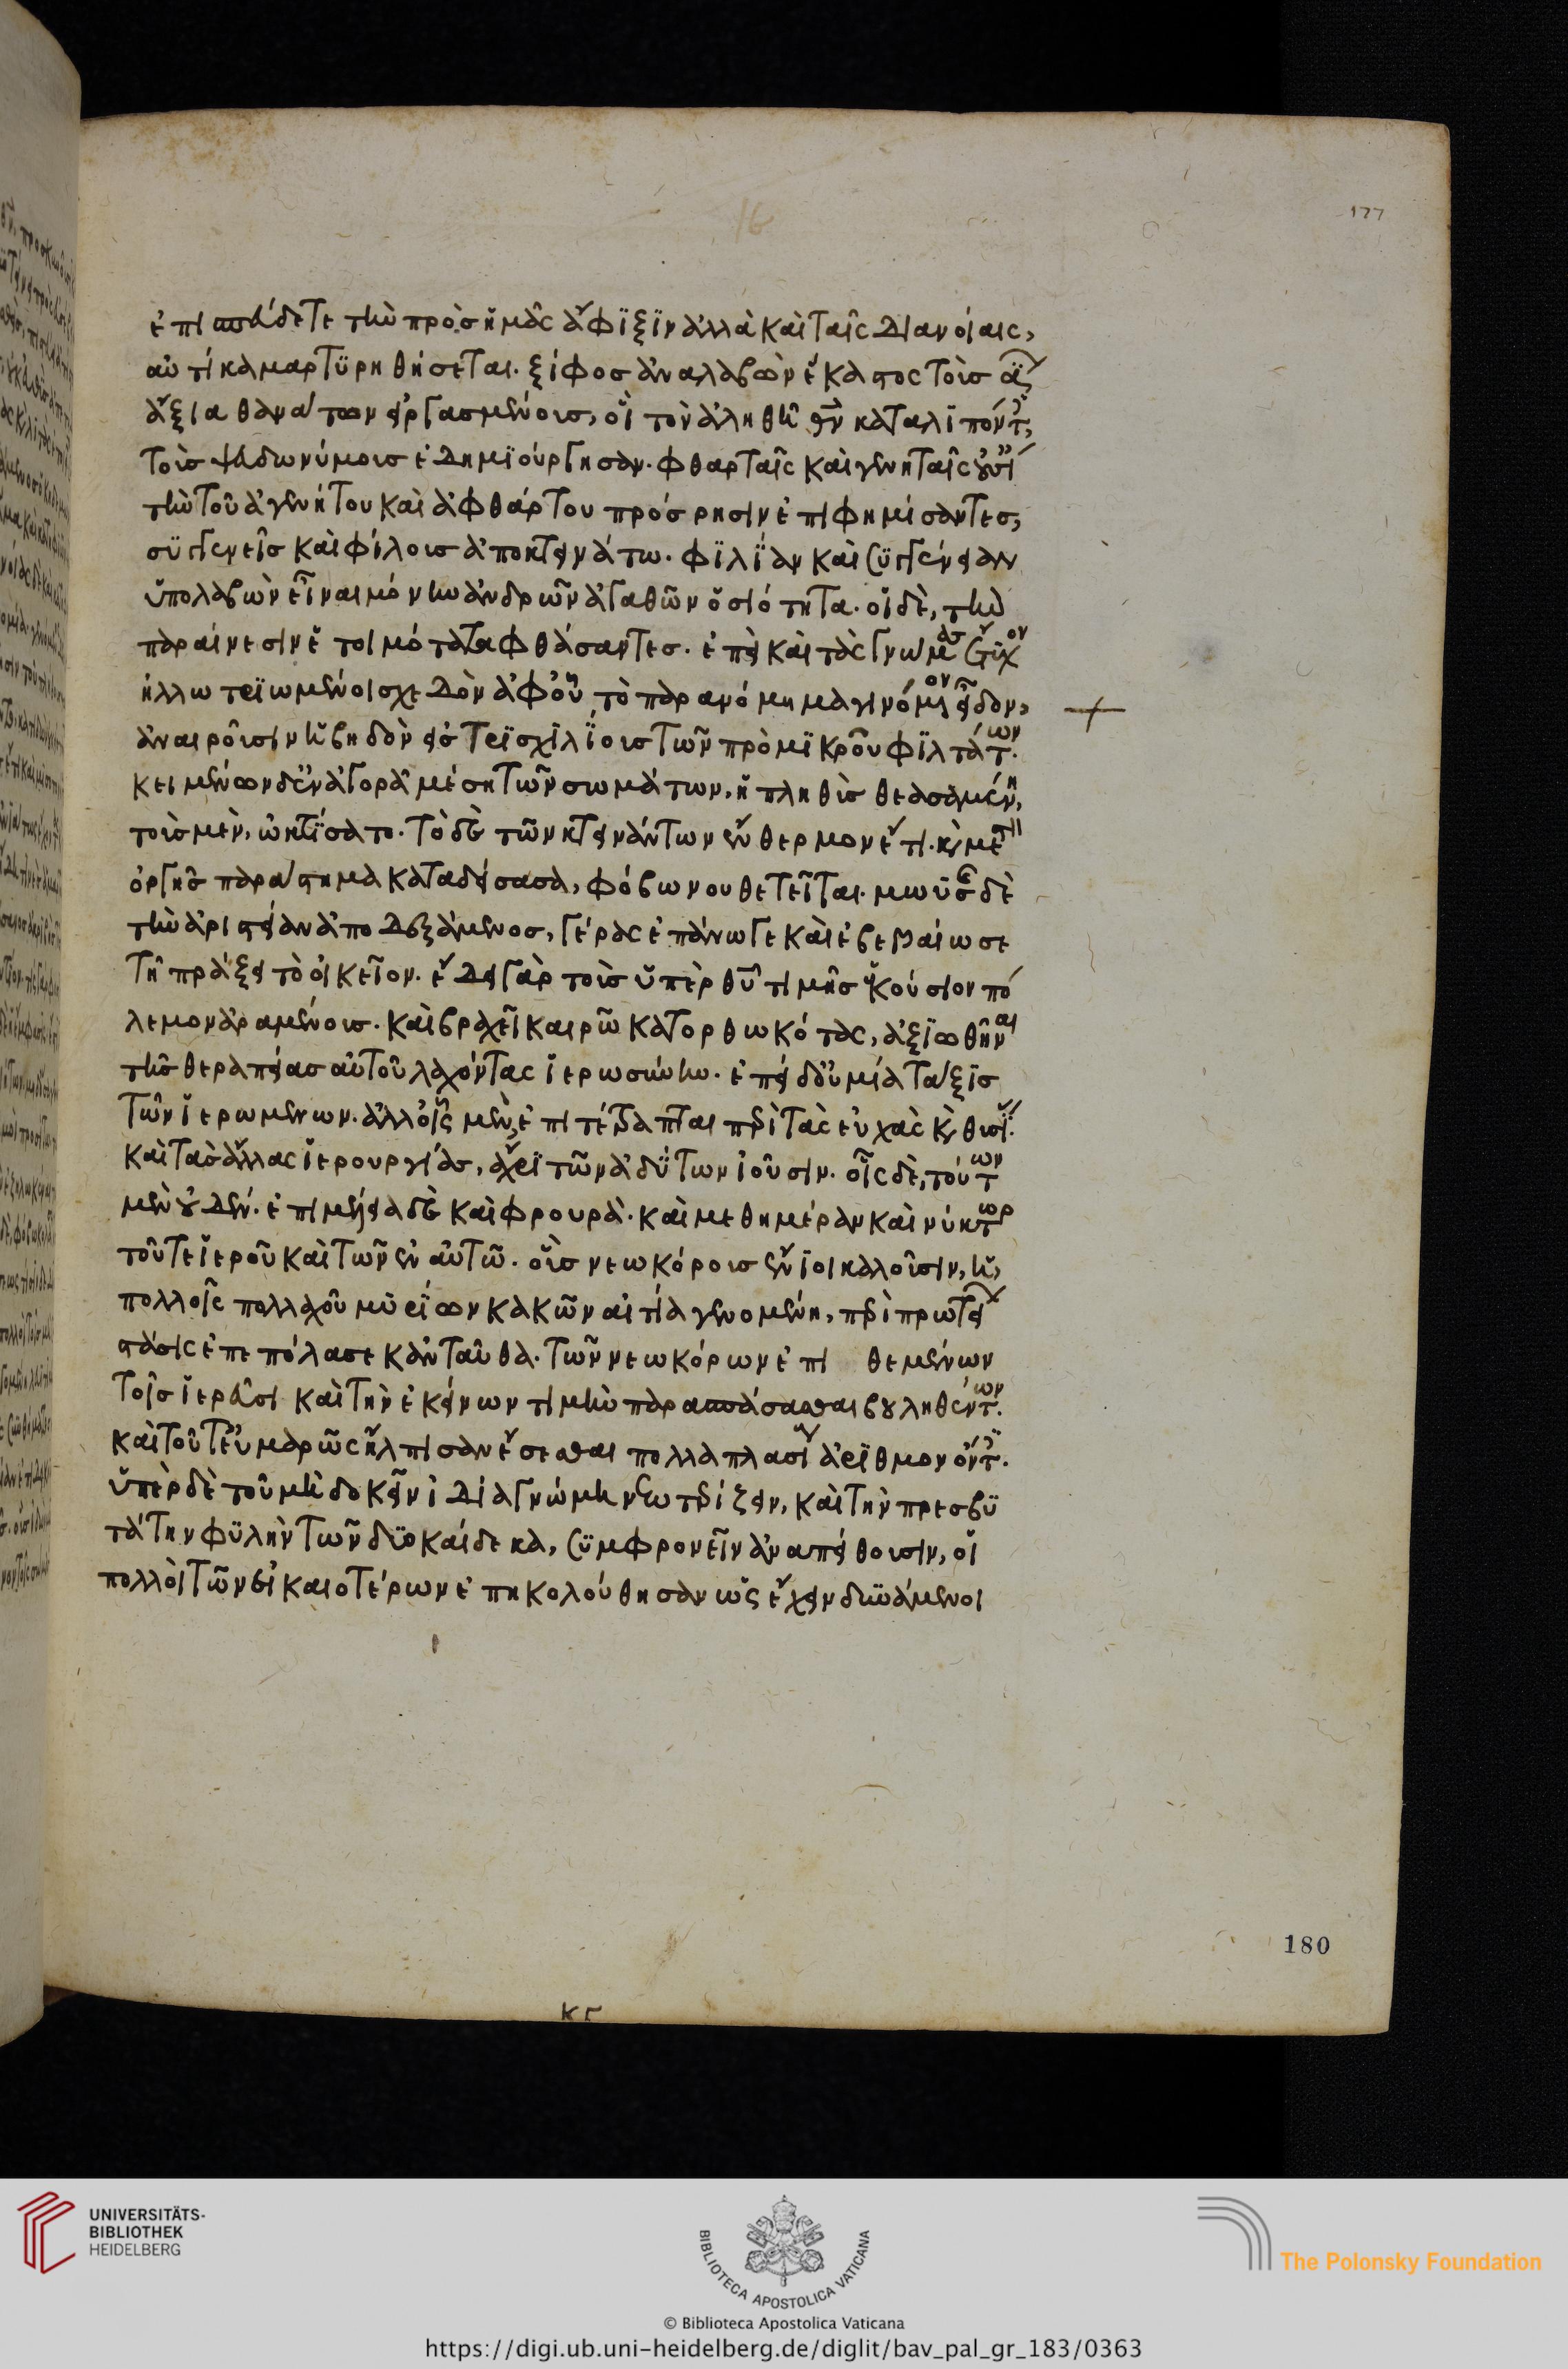 177
ἐπισπεύδετε τὴν πρὸς ἡμᾶς ἄφιξιν ἀλλὰ καὶ ταῖς διανοίαις,
αὐτίκα μαρτυρηθήσεται. ξίφος ἀναλαβὼν ἕκαστος τοῖς
ἄξια θανάτων εἰργασμένοις, οἳ τὸν ἀληθῆ θν καταλιπόντες,
τοὺς ψευδωνύμους ἐδημιούργησαν. φθαρταῖς καὶ γενηταῖς οὐσί
τὴν τοῦ ἀγενήτου καὶ ἀφθάρτου πρόσρησιν ἐπιφημίσαντες,
συγγενεῖς καὶ φίλους ἀποκτεινάτω. φιλίαν καὶ συγγένειαν
ὑπολαβὼν εἶναι μόνην ἀνδρῶν ἀγαθῶν ὁσιότητα. οἱ δὲ, τὴν
παραίνεσιν ἑτοιμότατα φθάσαντες. ἐπεὶ καὶ τὰς γνώμας
ἠλλωτριωμένοι σχεδὸν ἀφ' οὗ τὸ παρανόμημα γινόμενον εἶδον,
ἀναιροῦσιν ἡβηδὸν εἰς τρισχιλίους τῶν πρὸ μικροῦ φιλτάτων.
κειμένων δ' ἐν ἀγορᾷ μέσῃ τῶν σωμάτων. ἡ πληθὺς θεασαμένη,
τοὺς μὲν, ᾠκτίσατο. τὸ δὲ τῶν κτεινάντων ἔνθερμον ἔτι. καὶ μετ
ὀργῆς παράστημα καταδείσασα, φόβῳ νουθετεῖται. μωυσῆς δὲ
τὴν ἀριστείαν ἀποδεξάμενος, γέρας ἐπ
τῇ πράξει τὸ οἰκεῖον. ἔδει γὰρ τοὺς ὑπὲρ θυ τιμῆς ἑκούσιον πό
λεμον ἀραμένους. καὶ βραχεῖ καιρῷ κατορθωκότας, ἀξιωθῆναι
τῆς θεραπείας αὐτοῦ λαχόντας ἱερωσύνην. ἐπεὶ δ' οὐ μία τάξις
τῶν ἱερωμένων. ἀλλ' οἷς μὲν, ἐπιτέτραπται περὶ τὰς εὐχὰς καὶ θυσί.
καὶ τὰς ἄλλας ἱερουργίας, ἄχρι τῶν ἀδύτων ἰοῦσιν. οἷς δὲ, τούτων
μὲν οὐδέν. ἐπιμέλεια δὲ καὶ φρουρὰ. καὶ μεθ' ἡμέραν καὶ νύκτωρ
τοῦ τε ἱεροῦ καὶ τῶν ἐν αὐτῷ. οὓς νεωκόρους ἔνιοι καλοῦσιν, ἡ
πολλοῖς πολλαχοῦ μυρίων κακῶν αἰτία γενομένη, περὶ πρωτεί
στάσις ἐπεπόλασε κἀνταῦθα. τῶν νεωκόρων ἐπι θεμένων
τοῖς ἱερεῦσι καὶ τὴν ἐκείνων τιμὴν παρασπάσασθαι βουληθέντων.
καὶ τοῦτ' εὐμαρῶς ἤλπισαν ἔσεσθαι πολλαπλασί ἀριθμὸν ὄντες.
ὑπὲρ δὲ τοῦ μὴ δοκεῖν ἰδίᾳ γνώμῃ νεωτερίζειν, καὶ τὴν πρεσβυ
τάτην φυλὴν τῶν δυοκαίδεκα, συμφρονεῖν ἀναπείθουσιν, οἳ
πολλοὶ τῶν εἰκαιοτέρων ἐπηκολούθησαν ὡς ἔχειν δυνάμενοι
180
UNIVERSITÄTS-
BIBLIOTHEK
HEIDELBERG
BIBLIOTECA APOSTOLICA VATICANA
The Polonsky Foundation
© Biblioteca Apostolica Vaticana
https://digi.ub.uni-heidelberg.de/diglit/bav_pal_gr_183/0363